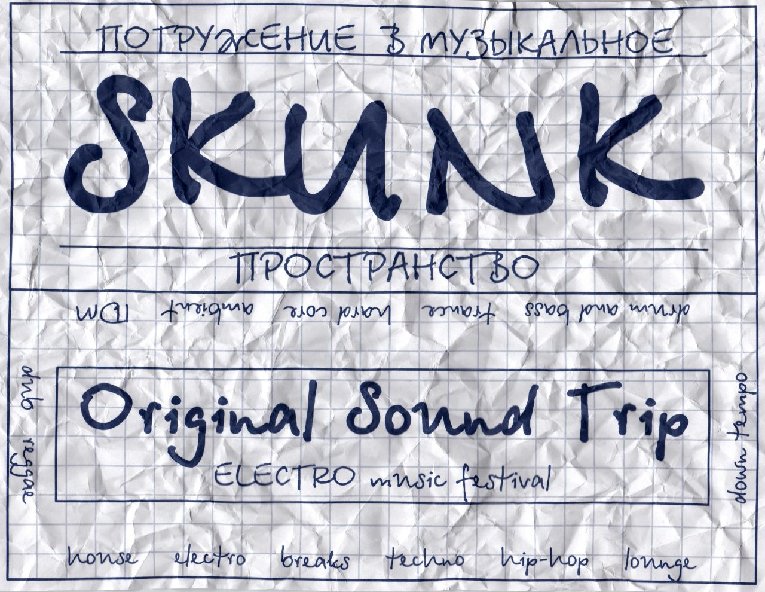 ПОГРУЖЕНИЕ В МУЗЫКАЛЬНОЕ
SKUNK
ПРОСТРАНСТВО
drum and bass trance hard core ambient IDM
dub reggae
Original Sound Trip
ELECTRO music festival
down tempo
house electro breaks techno hip-hop lounge